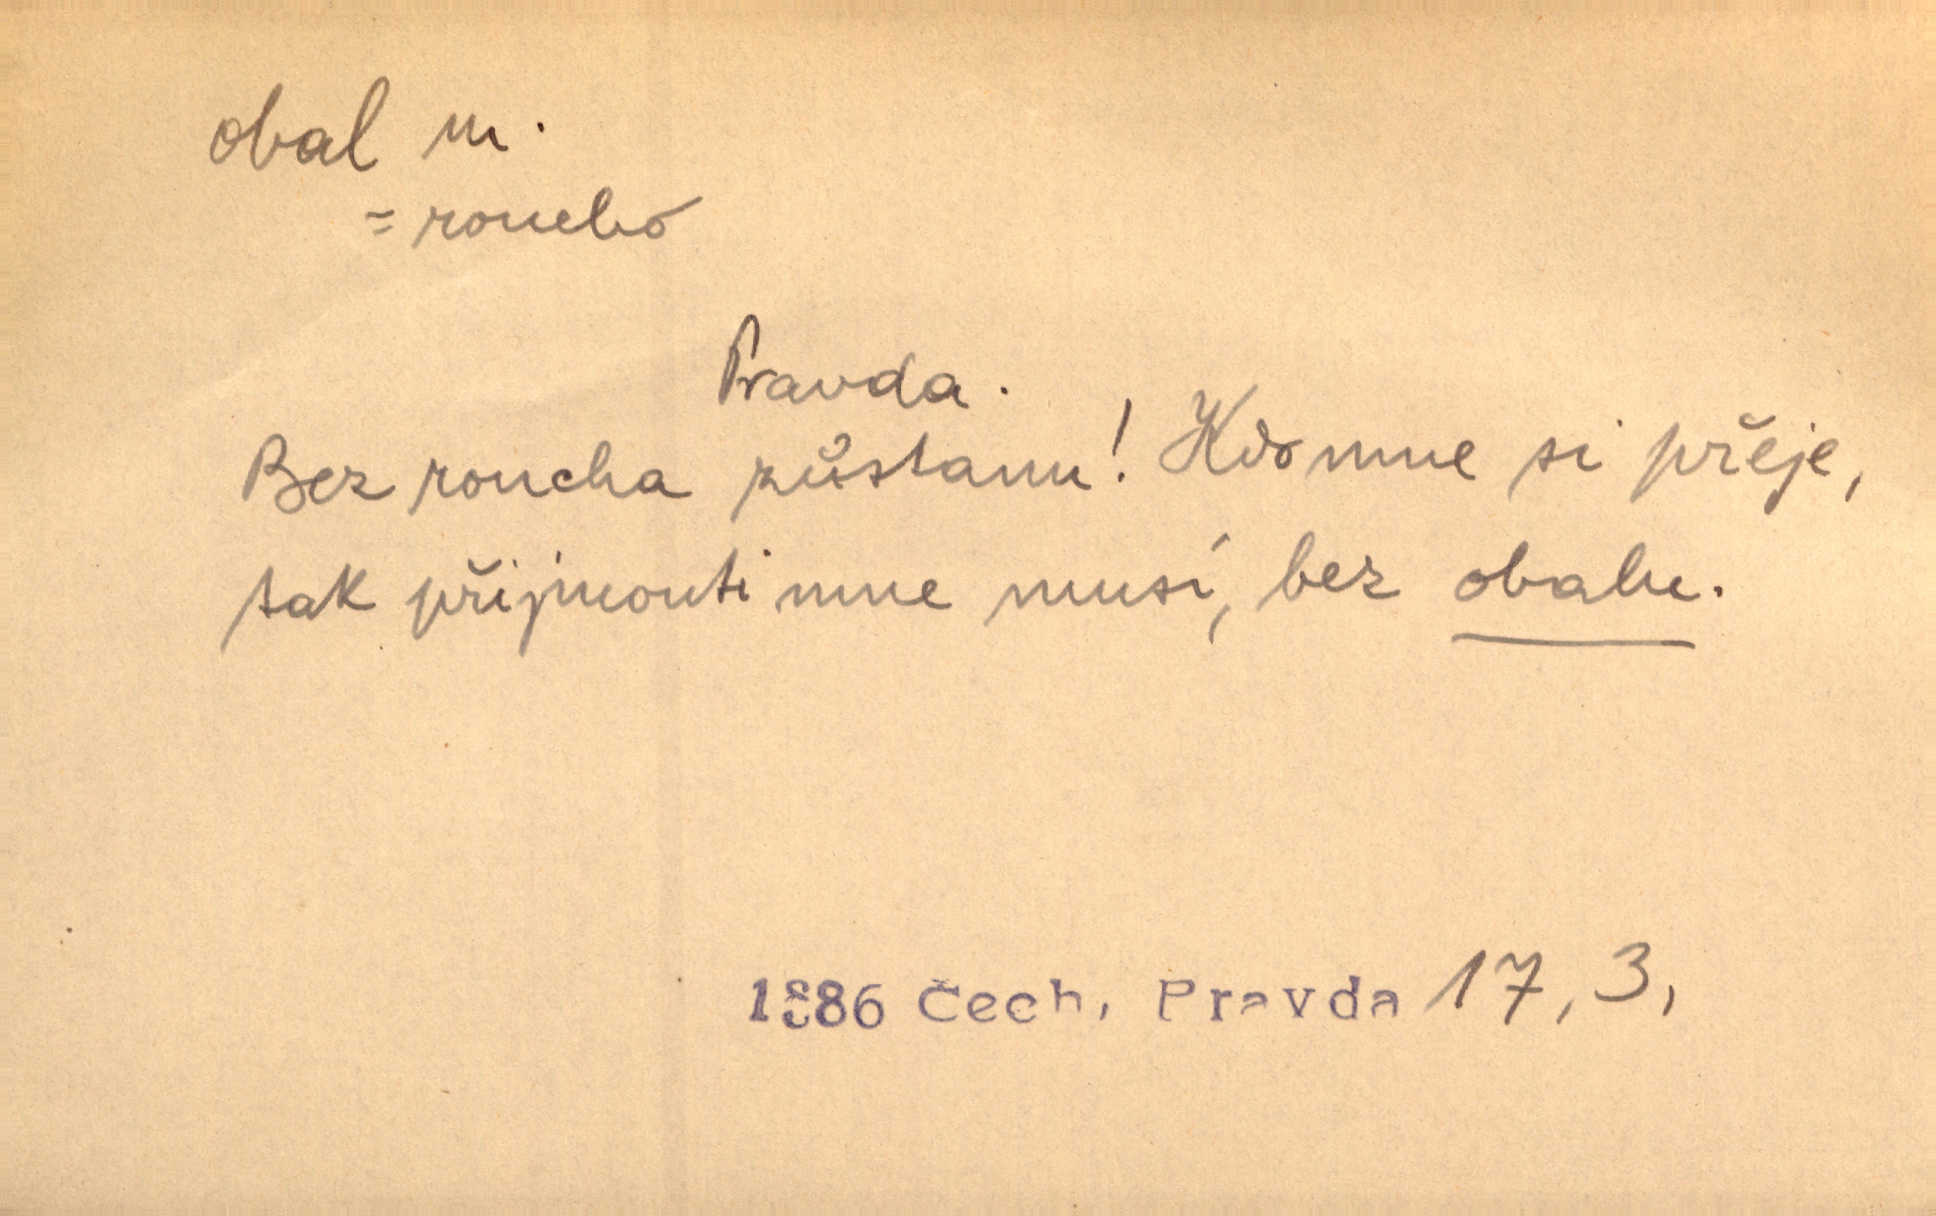 obal m.
= roucho
Pravda.
Bez roucha zůstanu! Kdo mne si přeje,
tak přijmouti mne musí, bez obalu.
1886 Čech, Pravda 17, 3,